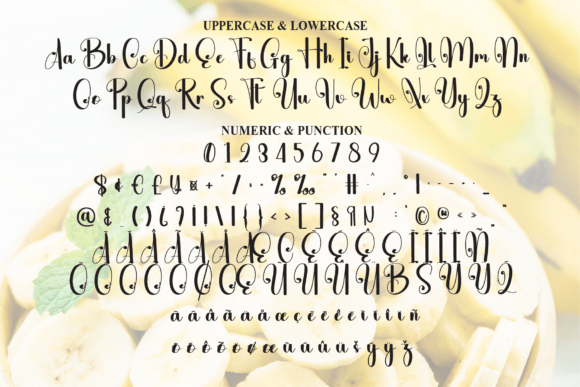 UPPERCASE & LOWERCASE
Aa Bb Cc Dd Ee Ff Gg Hh Ii Jj Kk Ll Mm Nn
Oo Pp Qq Rr Ss Tt Uu Vv Ww Xx Yy Zz
NUMERIC & PUNCTION
0 1 2 3 4 5 6 7 8 9
$ ¢ € £ ¥ ¤ + / ÷ % ‰ #
@ & _ ( ) { } < > [ ] § ¶ © ®
À Á Â Ã Ä Å Æ Ç È É Ê Ë Ì Í Î Ï Ñ
Ò Ó Ô Õ Ö Ø Œ Ù Ú Û Ü ß Š Ý Ÿ Ž
à á â ã ä å æ ç è é ê ë ì í î ï ñ
ò ó ô õ ö ø œ ù ú û ü š ý ÿ ž